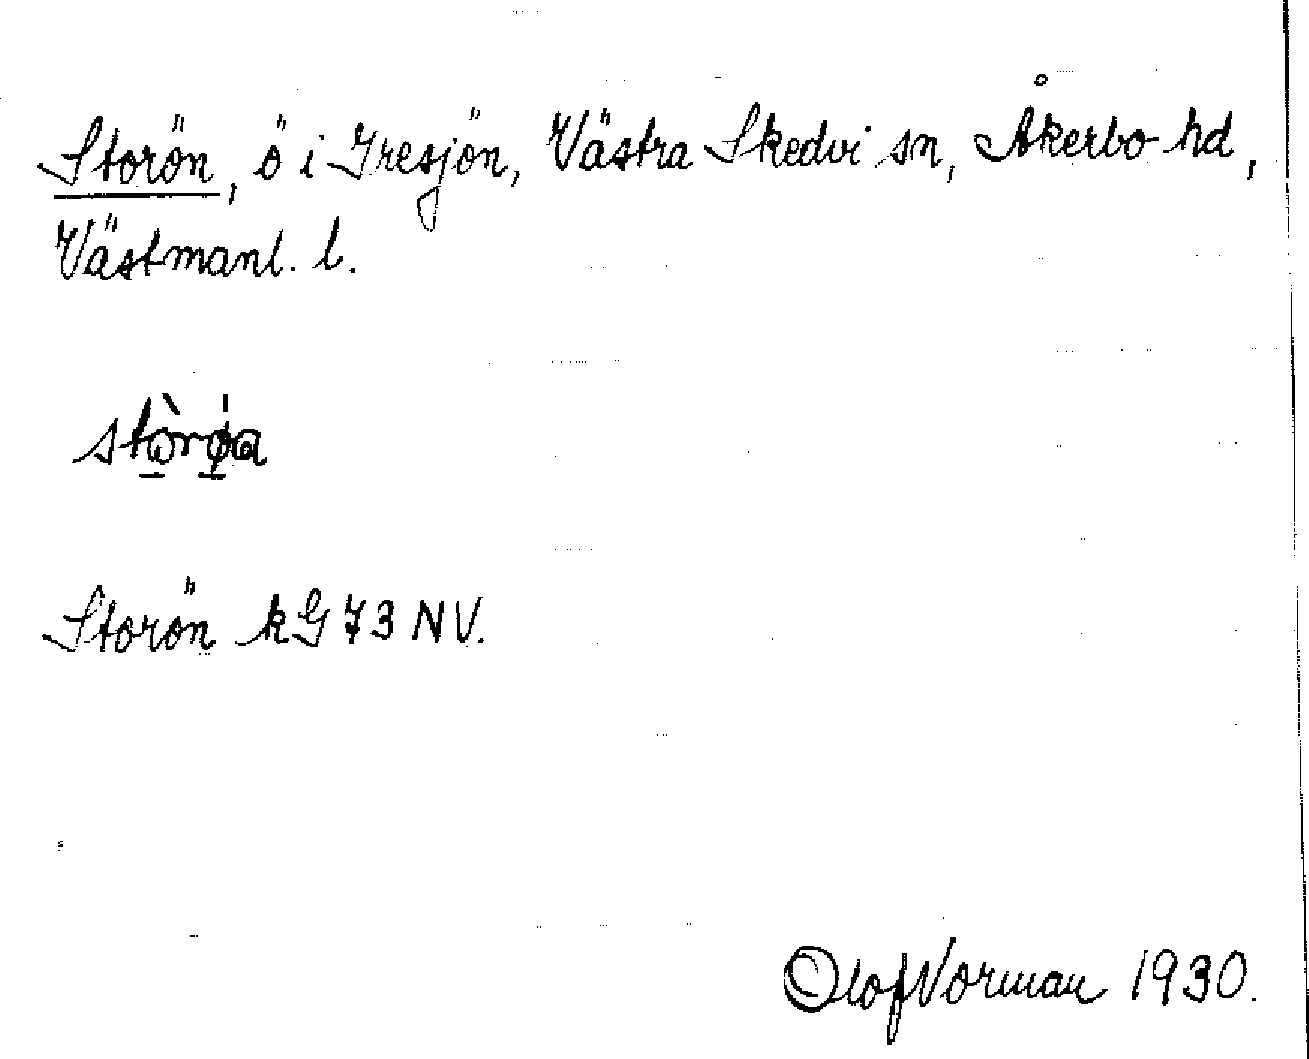 Storön, ö i Iresjön, Västra Skedvi sn, Åkerbo hd,
Västmanl. l.
stòrøa
Storön kG 73 NV.
Olof Norman 1930.